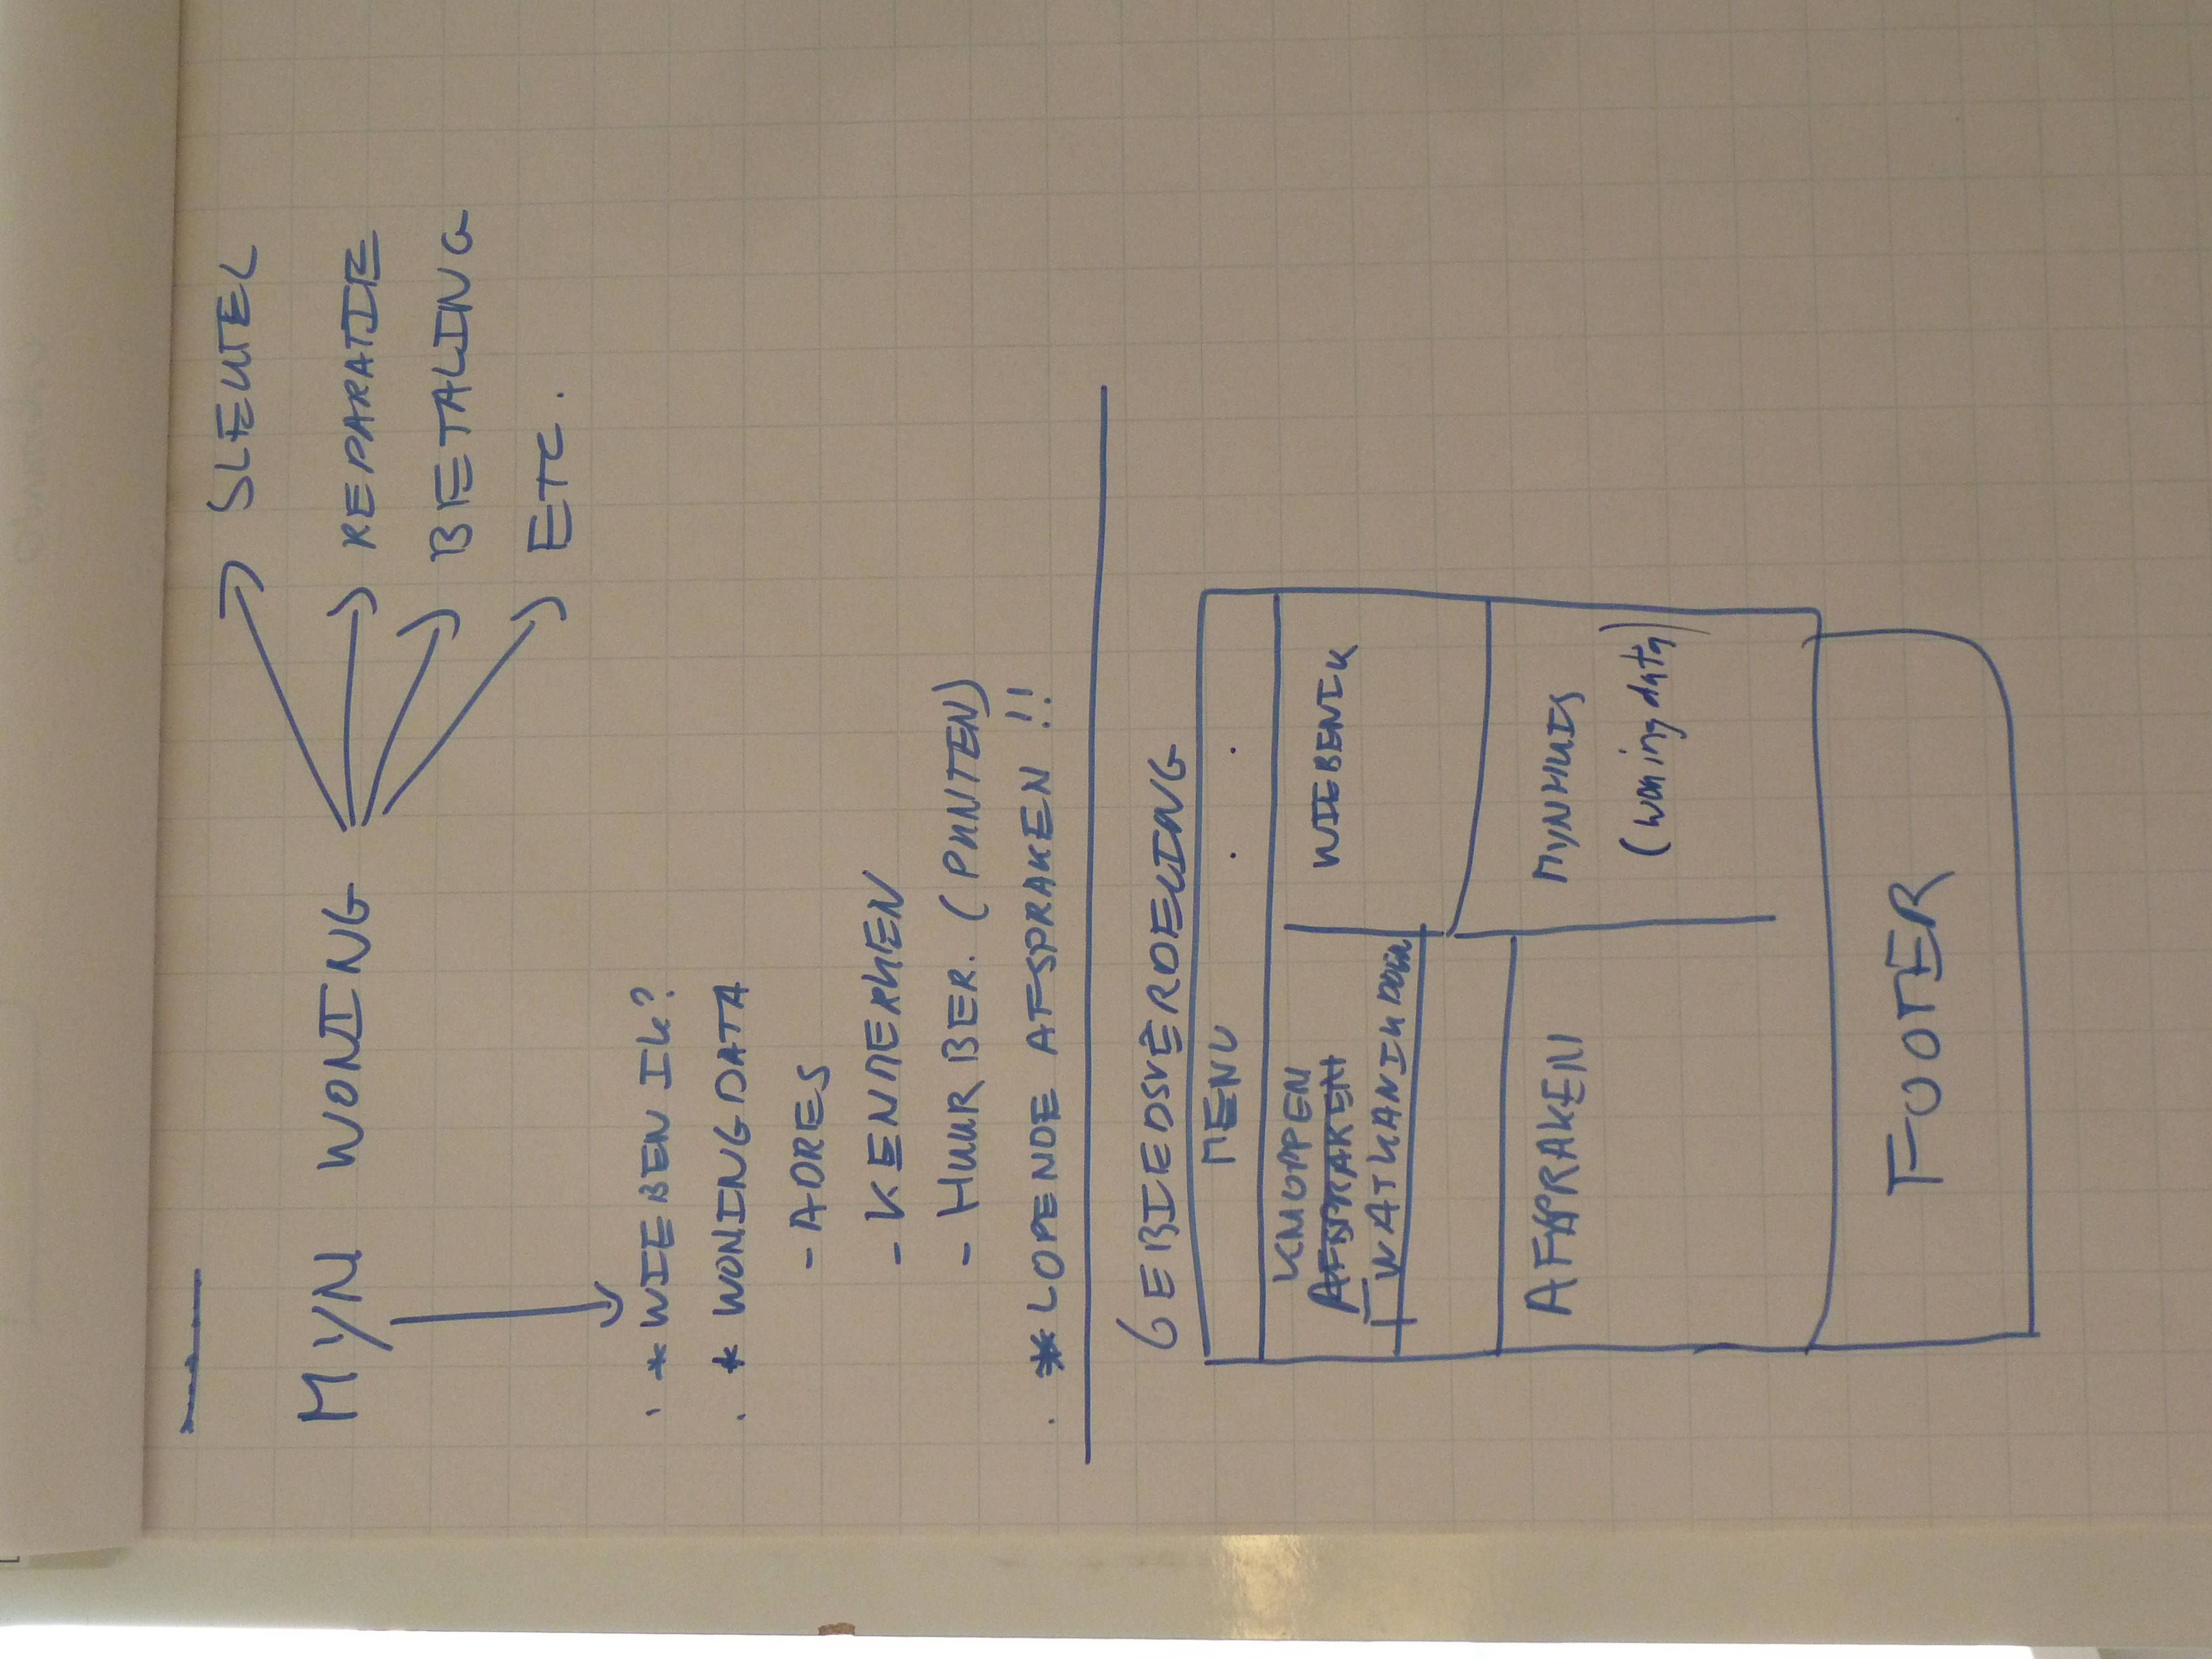 MYN WONING
SLEUTEL
REPARATIE
BETALING
ETC.
* WIE BEN IK?
* WONINGDATA
- ADRES
- KENMERKEN
- HUUR BER. (PUNTEN)
* LOPENDE AFSPRAKEN !!
GEBIEDSVERDELING
MENU
KNOPPEN
AFSPRAKEN
WATKANIKDOEN
WIEBENIK
AFSPRAKEN
MYNHUIS
(woningdata)
FOOTER